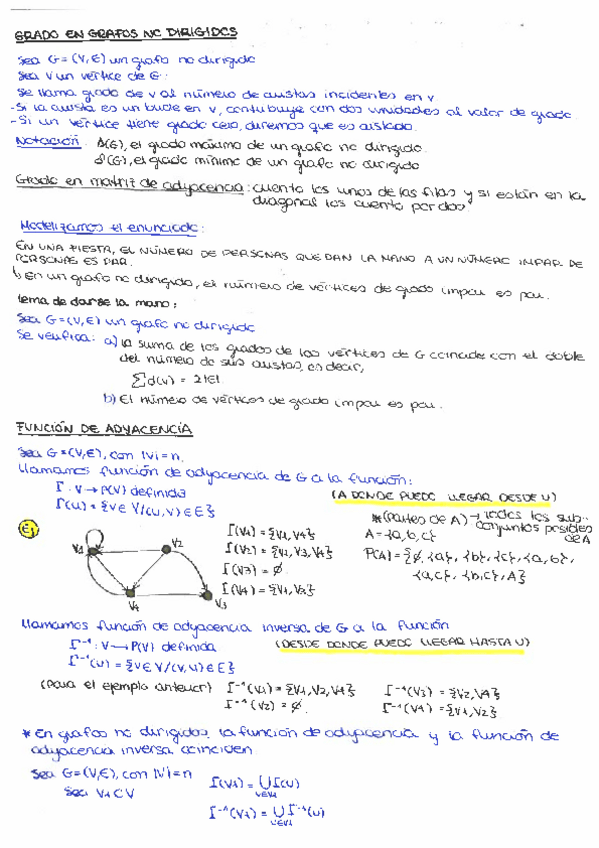 GRADO EN GRAFOS NO DIRIGIDOS
Sea G=(V,E) un grafo no dirigido
Sea v un vértice de G.
Se llama grado de v al número de aristas incidentes en v.
-Si la arista es un bucle en v, contribuye con dos unidades al valor de grado.
-Si un vértice tiene grado cero, diremos que es aislado.
Notación: Δ(G), el grado máximo de un grafo no dirigido.
δ(G), el grado mínimo de un grafo no dirigido
Grado en matriz de adyacencia: cuento los unos de las filas y si están en la
diagonal los cuento por dos.
Modelizamos el enunciado:
EN UNA FIESTA, EL NÚMERO DE PERSONAS QUE DAN LA MANO A UN NÚMERO IMPAR DE
PERSONAS ES PAR.
↳ En un grafo no dirigido, el número de vértices de grado impar es par.
Lema de darse la mano:
Sea G=(V,E) un grafo no dirigido
Se verifica: a) la suma de los grados de los vértices de G coincide con el doble
del número de sus aristas, es decir,
∑d(v) = 2|E|
b) El número de vértices de grado impar es par.
FUNCIÓN DE ADYACENCIA
Sea G=(V,E), con |V|=n.
Llamamos función de adyacencia de G a la función:
Γ: V → P(V) definida
Γ(u) = {v ∈ V/(u,v) ∈ E}
(A DONDE PUEDO LLEGAR DESDE U)
*(Partes de A) → todos los sub-
conjuntos posibles
de A
Ej
V1
V2
V4
V3
Γ(V1) = {V1,V4}
Γ(V2) = {V1,V3,V4}
Γ(V3) = ∅
Γ(V4) = {V1,V3}
A={a,b,c}
P(A)={∅,{a},{b},{c},{a,b},
{a,c},{b,c},A}
Llamamos función de adyacencia inversa de G a la función
Γ⁻¹: V → P(V) definida
Γ⁻¹(u) = {v ∈ V/(v,u) ∈ E}
(DESDE DONDE PUEDO LLEGAR HASTA U)
(Para el ejemplo anterior) Γ⁻¹(V1) = {V1,V2,V4} Γ⁻¹(V3) = {V2,V4}
Γ⁻¹(V2) = ∅ Γ⁻¹(V4) = {V1,V2}
* En grafos no dirigidos, la función de adyacencia y la función de
adyacencia inversa coinciden.
Sea G=(V,E), con |V|=n
Sea V1⊂V
Γ(V1) = ∪Γ(u)
u∈V1
Γ⁻¹(V1) = ∪Γ⁻¹(u)
u∈V1